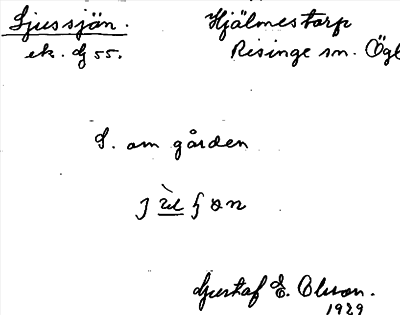 Ljussjön. Hjälmestorp
ek. dj 55. Risinge sn. Ögl
S. om gården
Gustaf E. Olsson.
1929